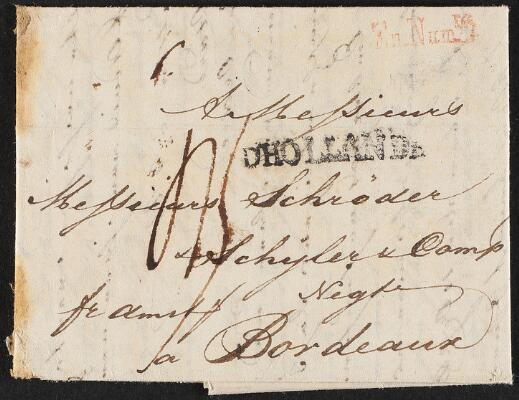 A Messieurs
DHOLLANDE
Messieurs Schröder
& Schyler & Comp
Negts
fr amst
a Bordeaux